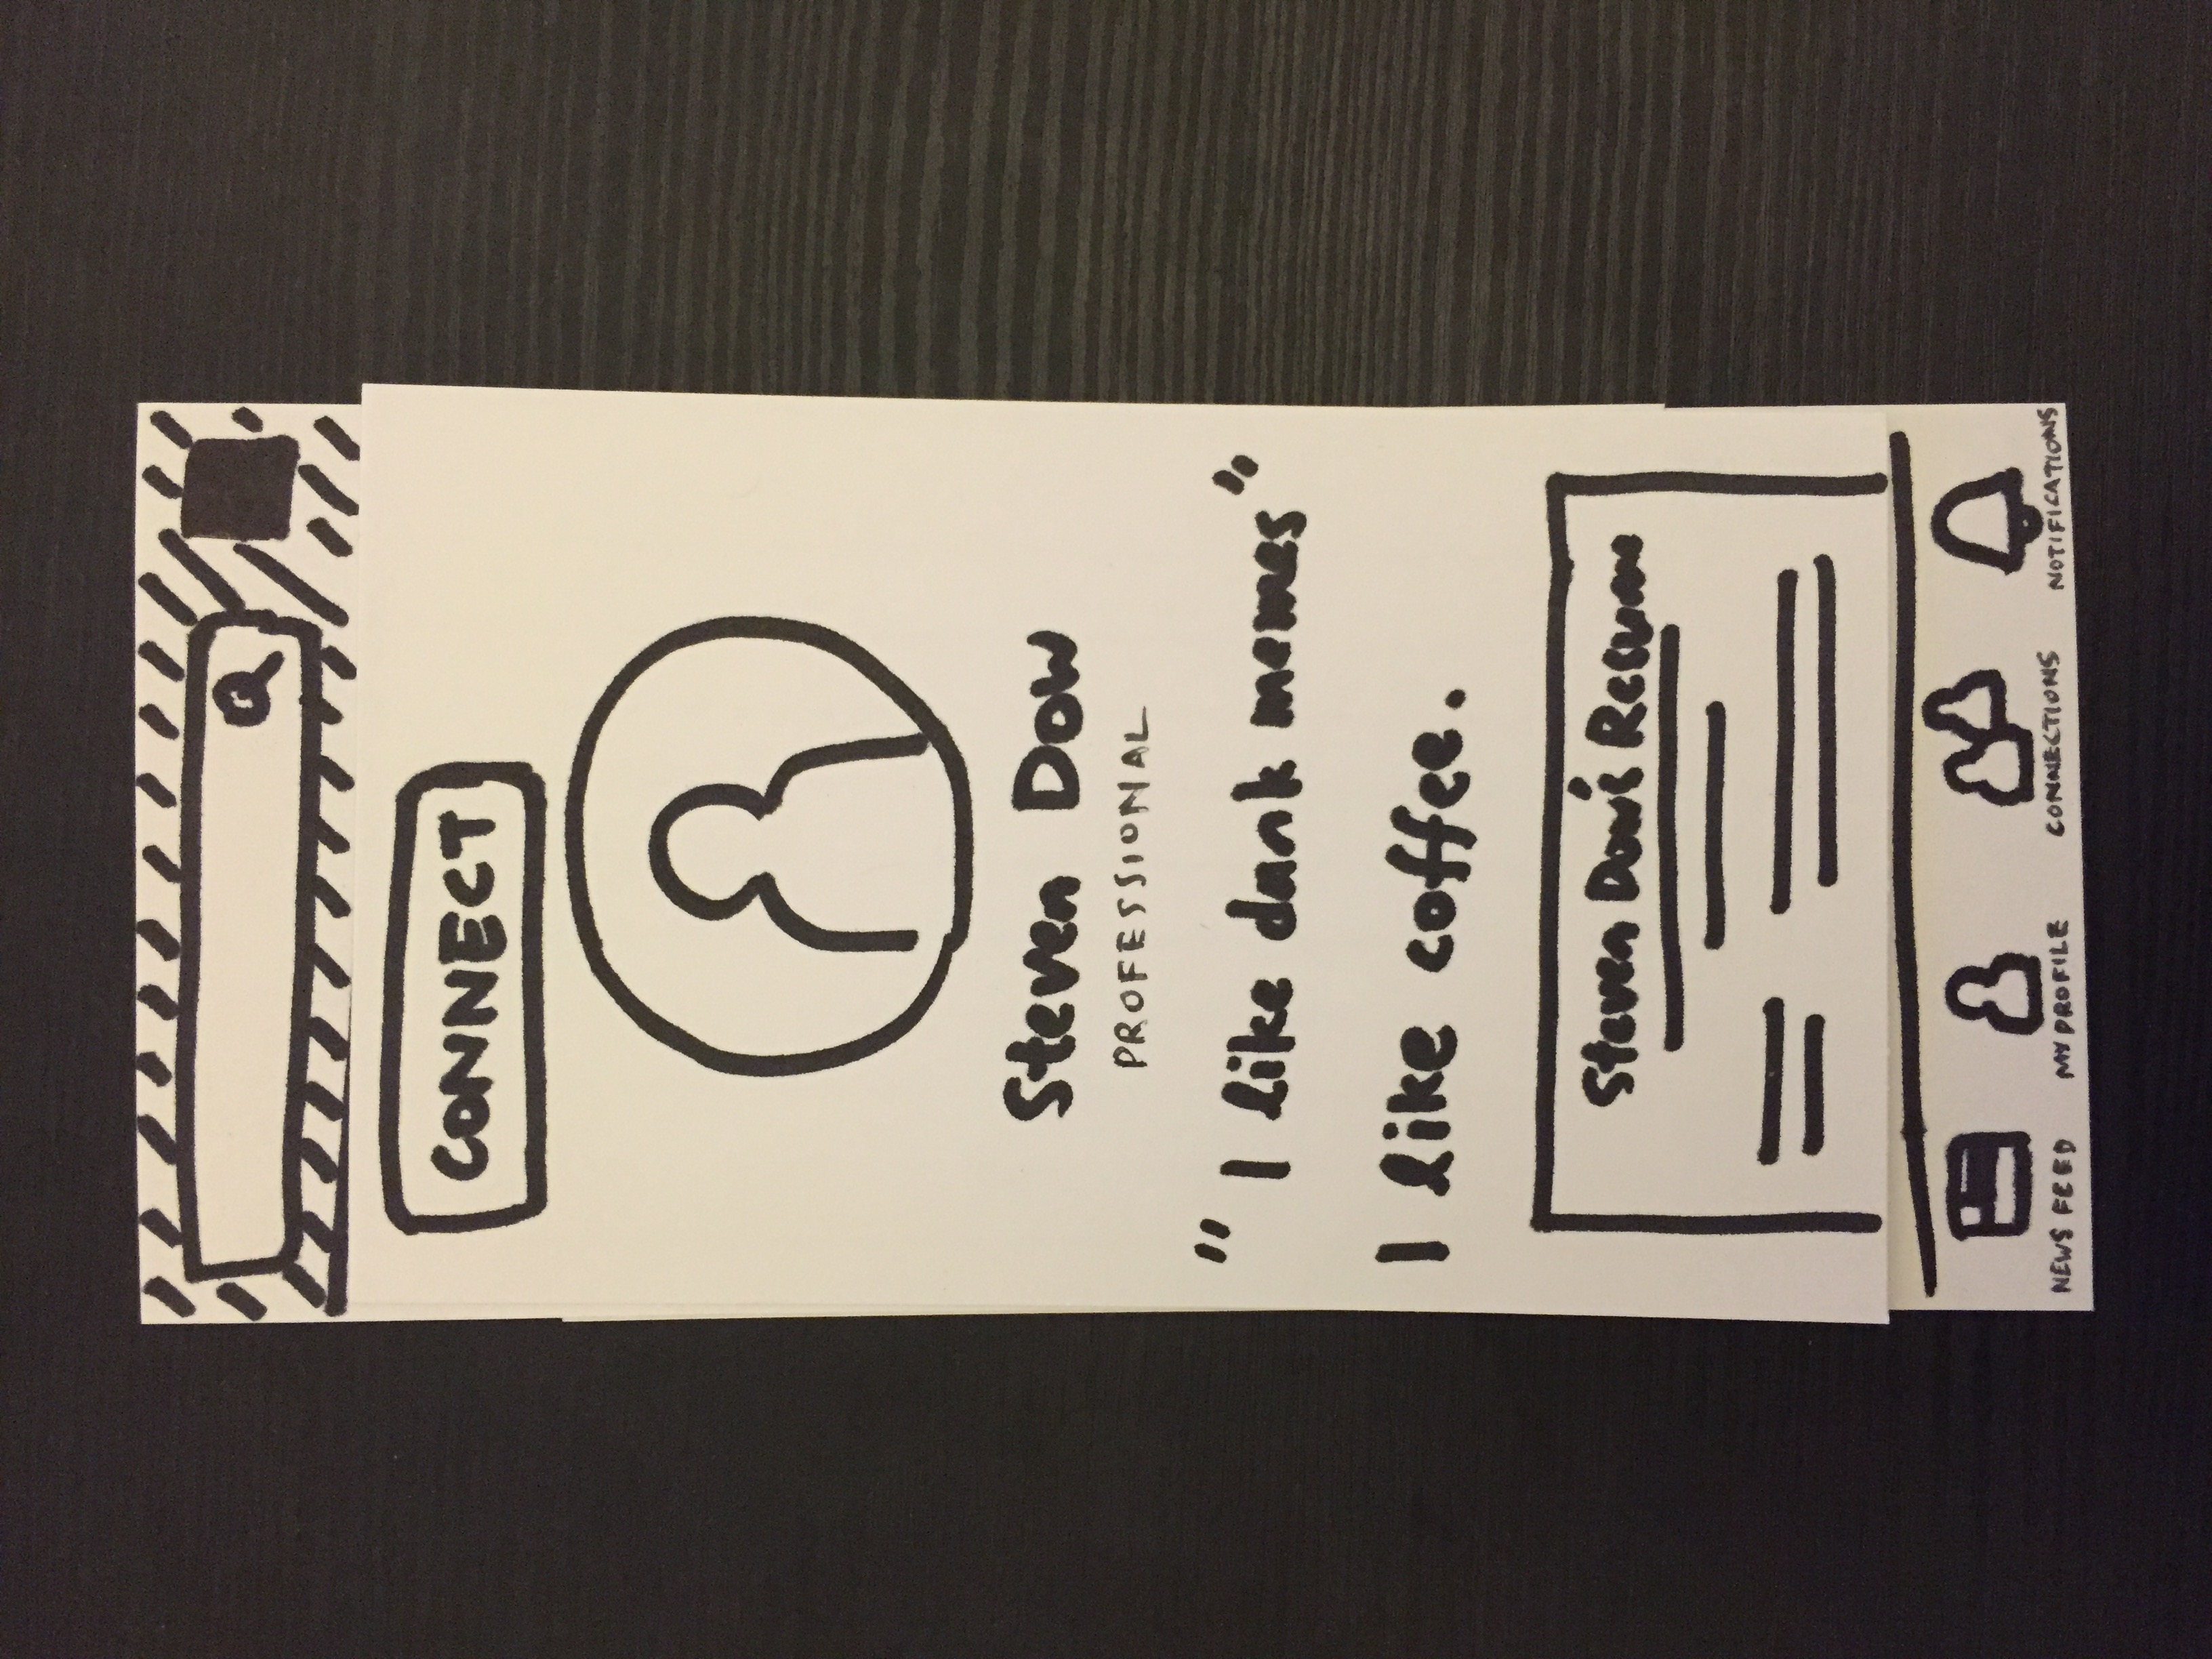 CONNECT
Steven Dow
PROFESSIONAL
"I like dank memes"
I like coffee.
Steven Dow's Resume
NEWS FEED MY PROFILE CONNECTIONS NOTIFICATIONS